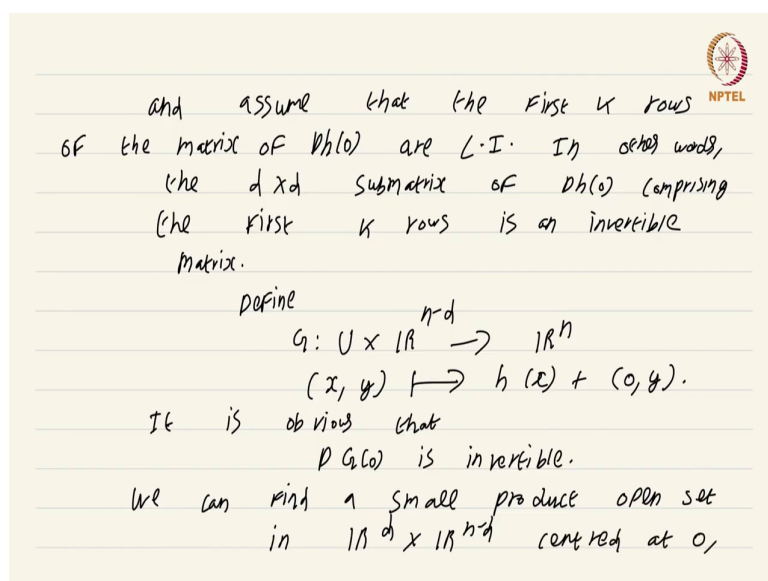 NPTEL
and assume that the first k rows
of the matrix of Dh(0) are L.I. In other words,
the d x d submatrix of Dh(0) comprising
the first k rows is an invertible
matrix.
Define
G: U x IR^{n-d} → IR^n
(x, y) ↦ h(x) + (0,y).
It is obvious that
DG(0) is invertible.
We can find a small product open set
in IR^d x IR^{n-d} centred at 0,